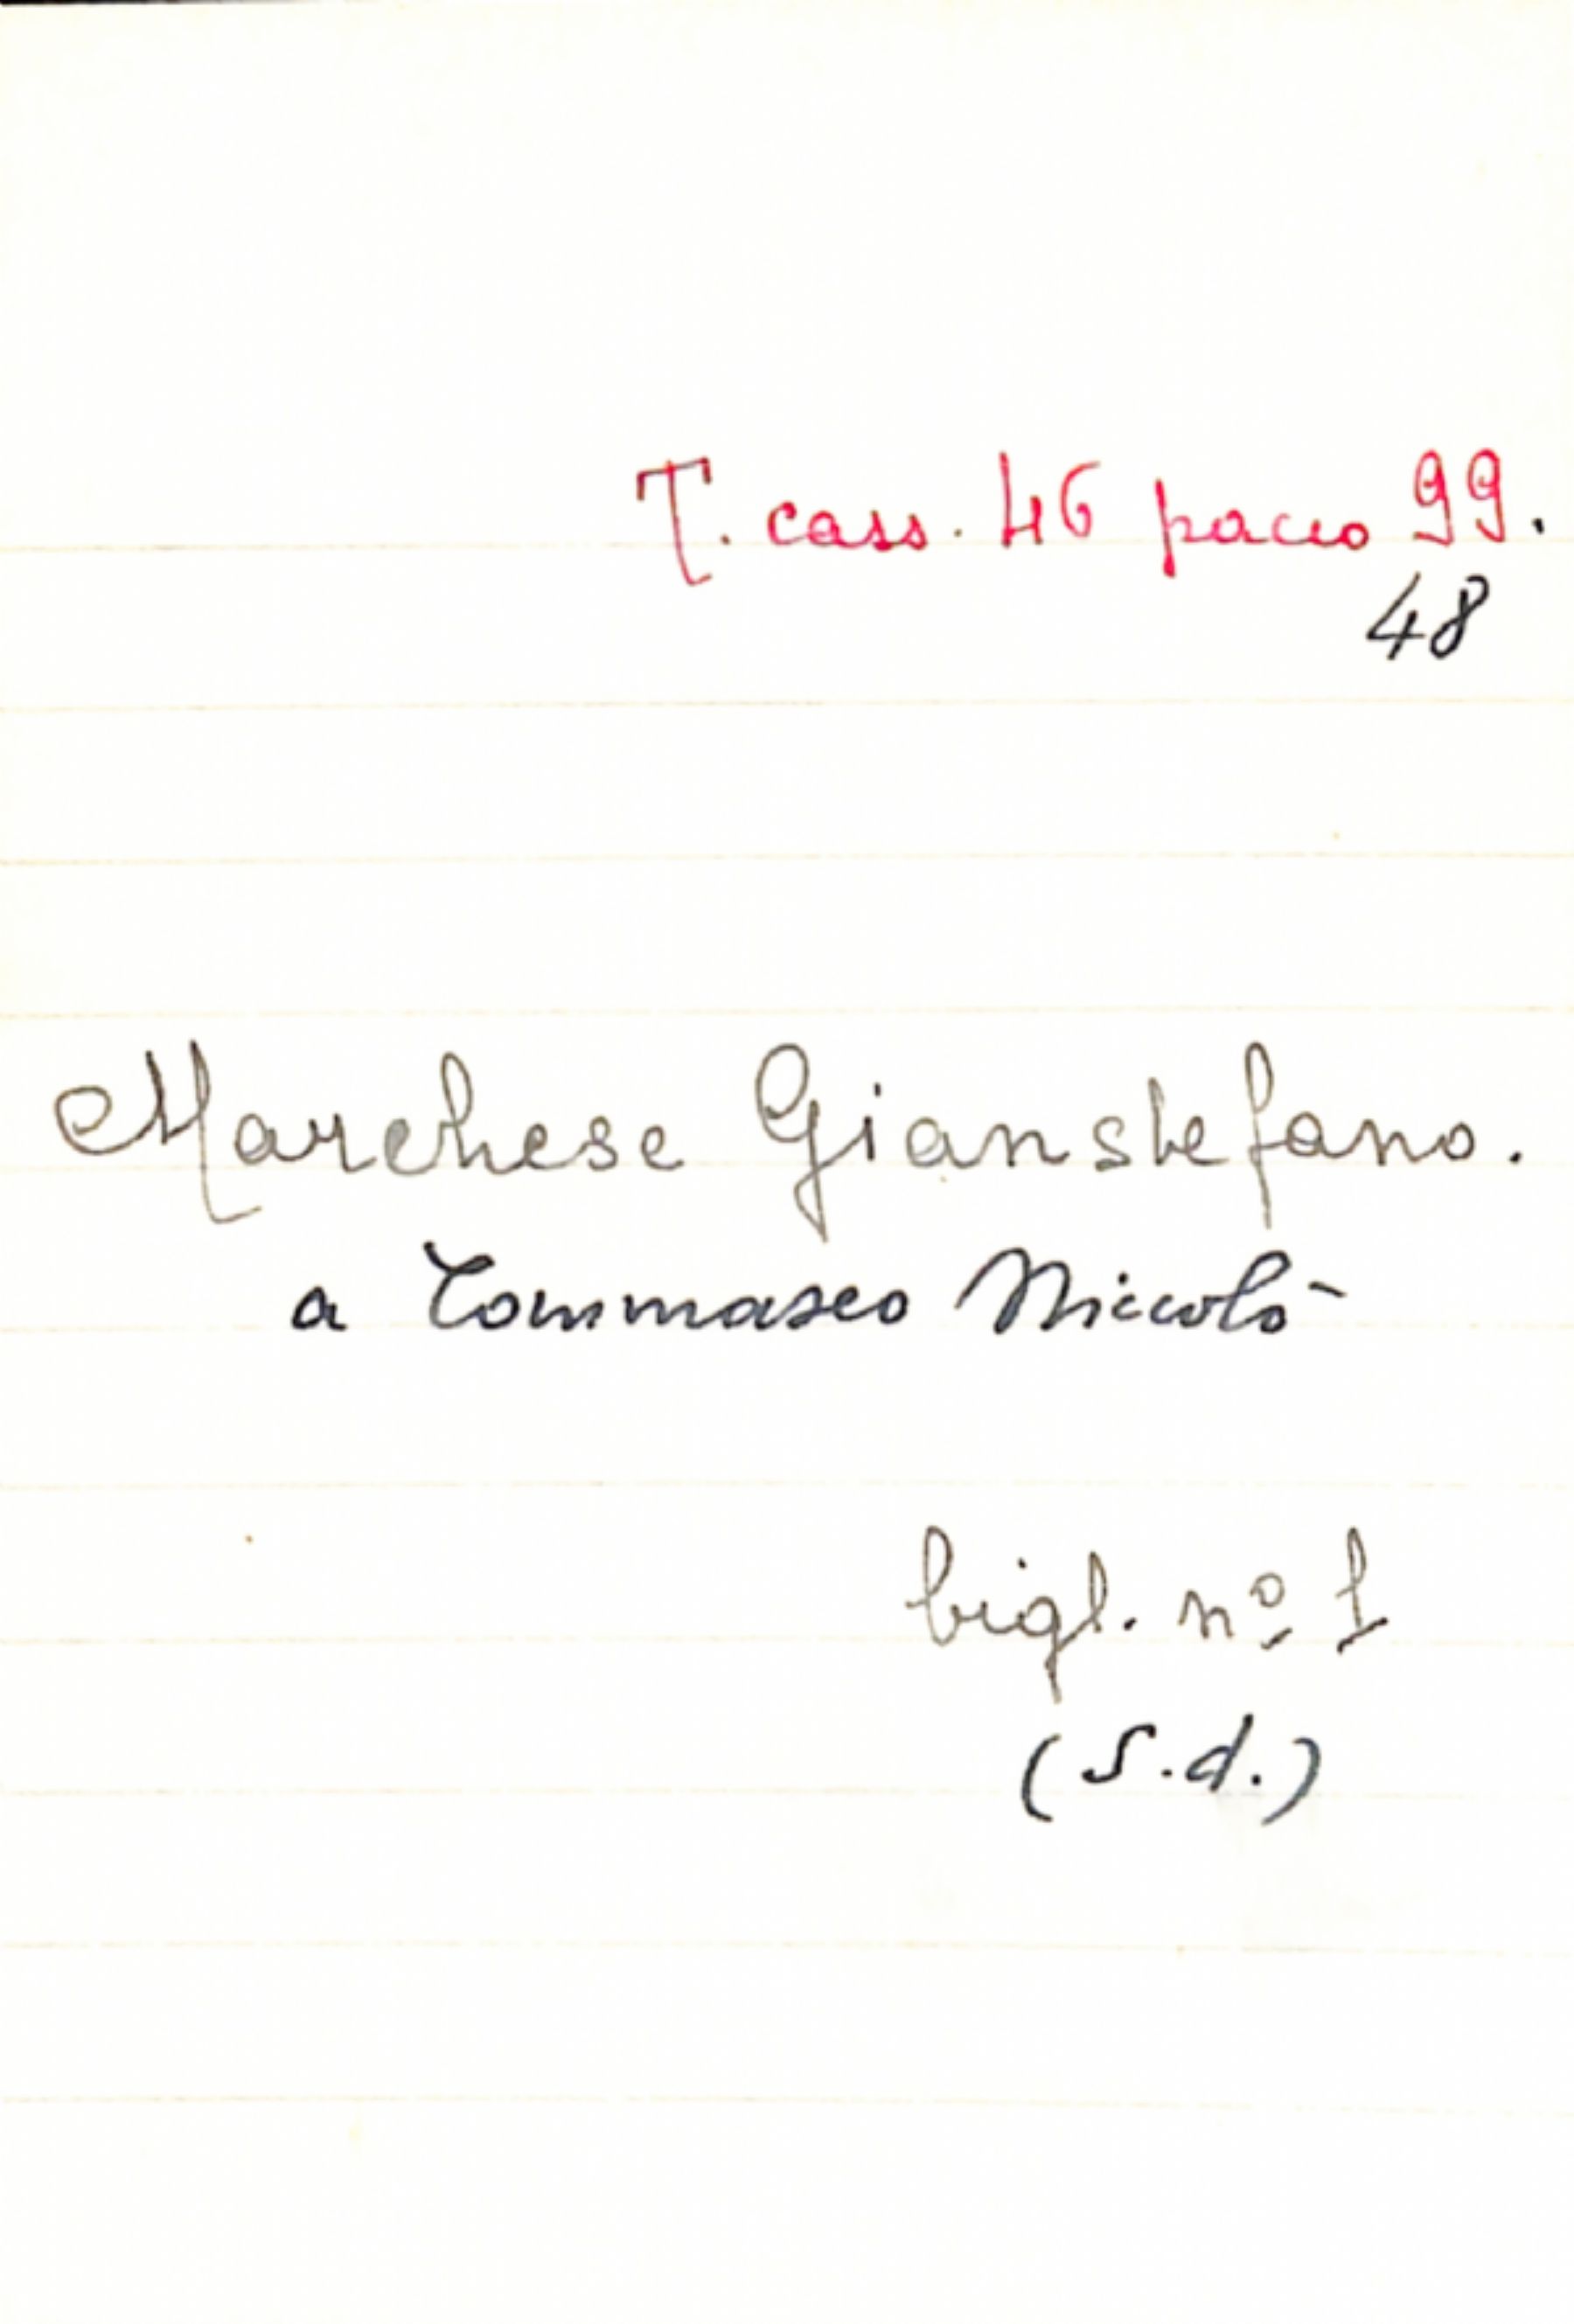 T. cass. 46 pacco 99.
48
Marchese Gianstefano.
a Tommaseo Niccolò
bigl. nº 1
(S.d.)